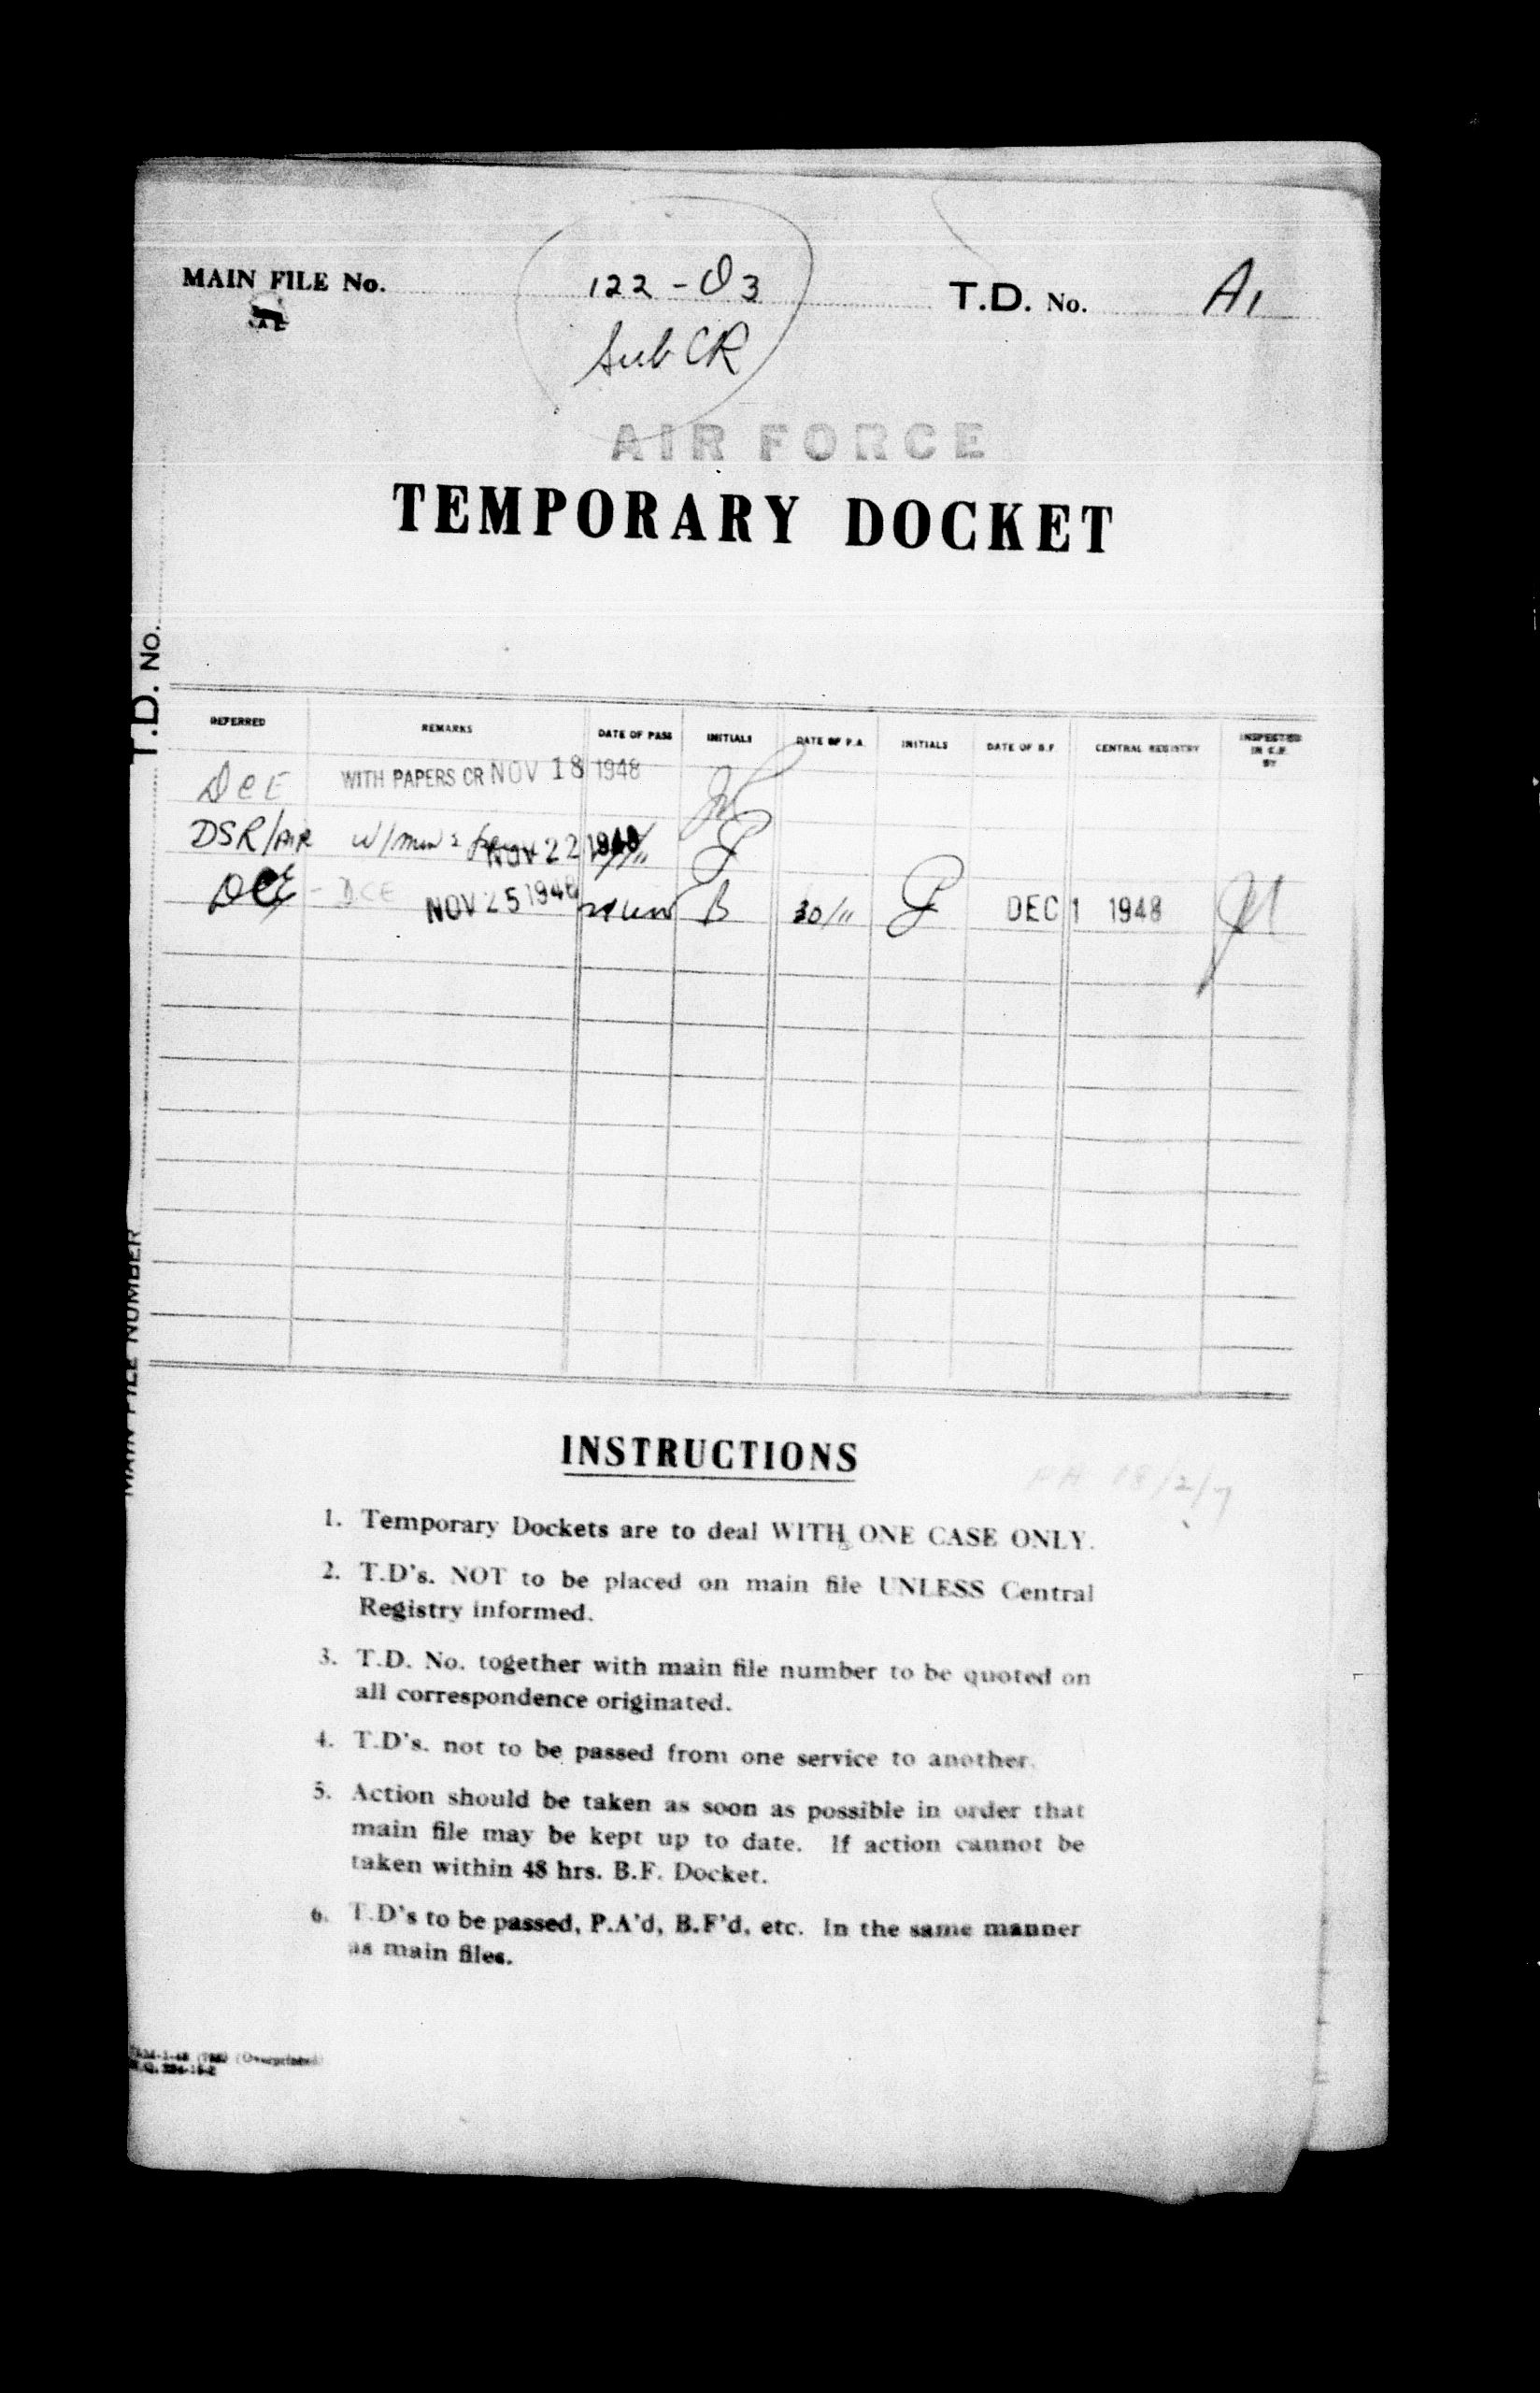 MAIN FILE No. 122-03 T.D. No. A1
Sub CR
AIR FORCE
TEMPORARY DOCKET
T.D. No.
MAIN FILE NUMBER
REFERRED REMARKS DATE OF PASS INITIALS DATE OF P.A. INITIALS DATE OF B.F. CENTRAL REGISTRY INSPECTED IN C.R. BY
DCE WITH PAPERS CR NOV 18 1948
DSR/AIR w/min 2 NOV 22 1948
DCE - DCE NOV 25 1948 B 30/11 DEC 1 1948
INSTRUCTIONS
PA 18/2/7
1. Temporary Dockets are to deal WITH ONE CASE ONLY.
2. T.D's. NOT to be placed on main file UNLESS Central
Registry informed.
3. T.D. No. together with main file number to be quoted on
all correspondence originated.
4. T.D's. not to be passed from one service to another.
5. Action should be taken as soon as possible in order that
main file may be kept up to date. If action cannot be
taken within 48 hrs. B.F. Docket.
6. T.D's to be passed, P.A'd, B.F'd, etc. In the same manner
as main files.
(Overprinted)